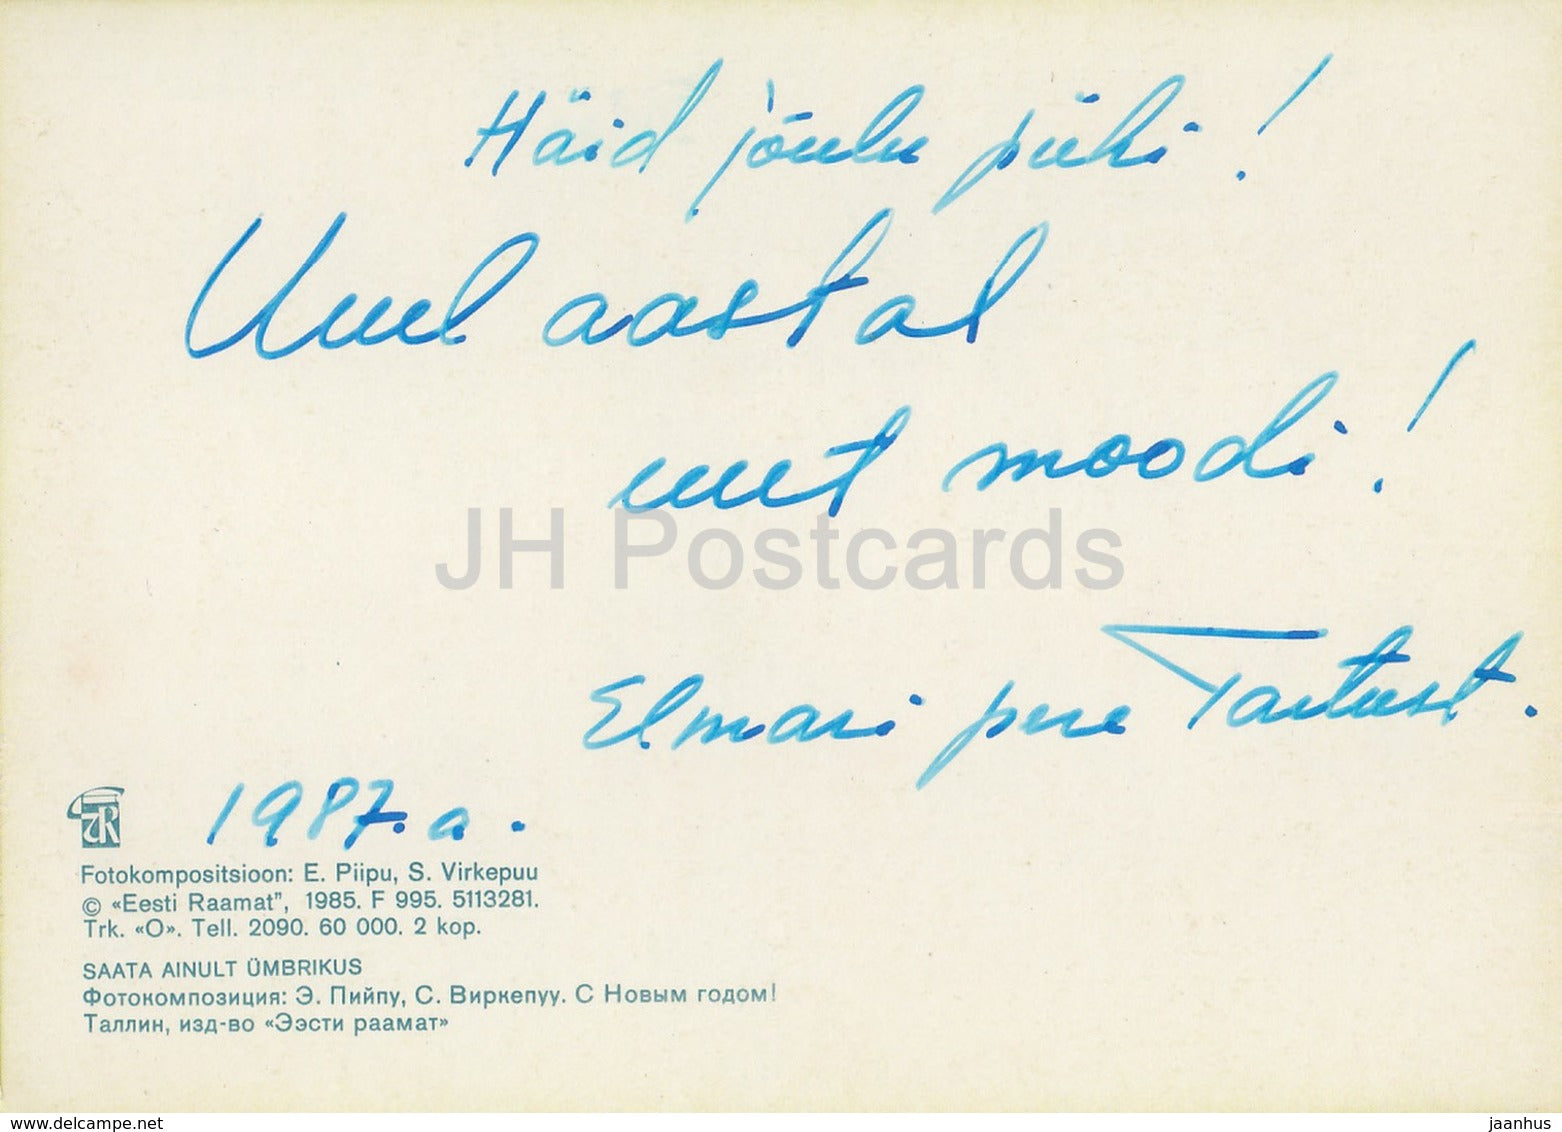 Häid jõulu pühi!
Uuel aastal
uut moodi!
JH Postcards
Elmari pere Tartust.
1987.a.
Fotokompositsioon: E. Piipu, S. Virkepuu
© «Eesti Raamat", 1985. F 995. 5113281.
Trk. «O». Tell. 2090. 60 000. 2 kop.
SAATA AINULT ÜMBRIKUS
Фотокомпозиция: Э. Пийпу, С. Виркепуу. С Новым годом!
Таллин, изд-во «Ээсти раамат»
www.delcampe.net
jaanhus